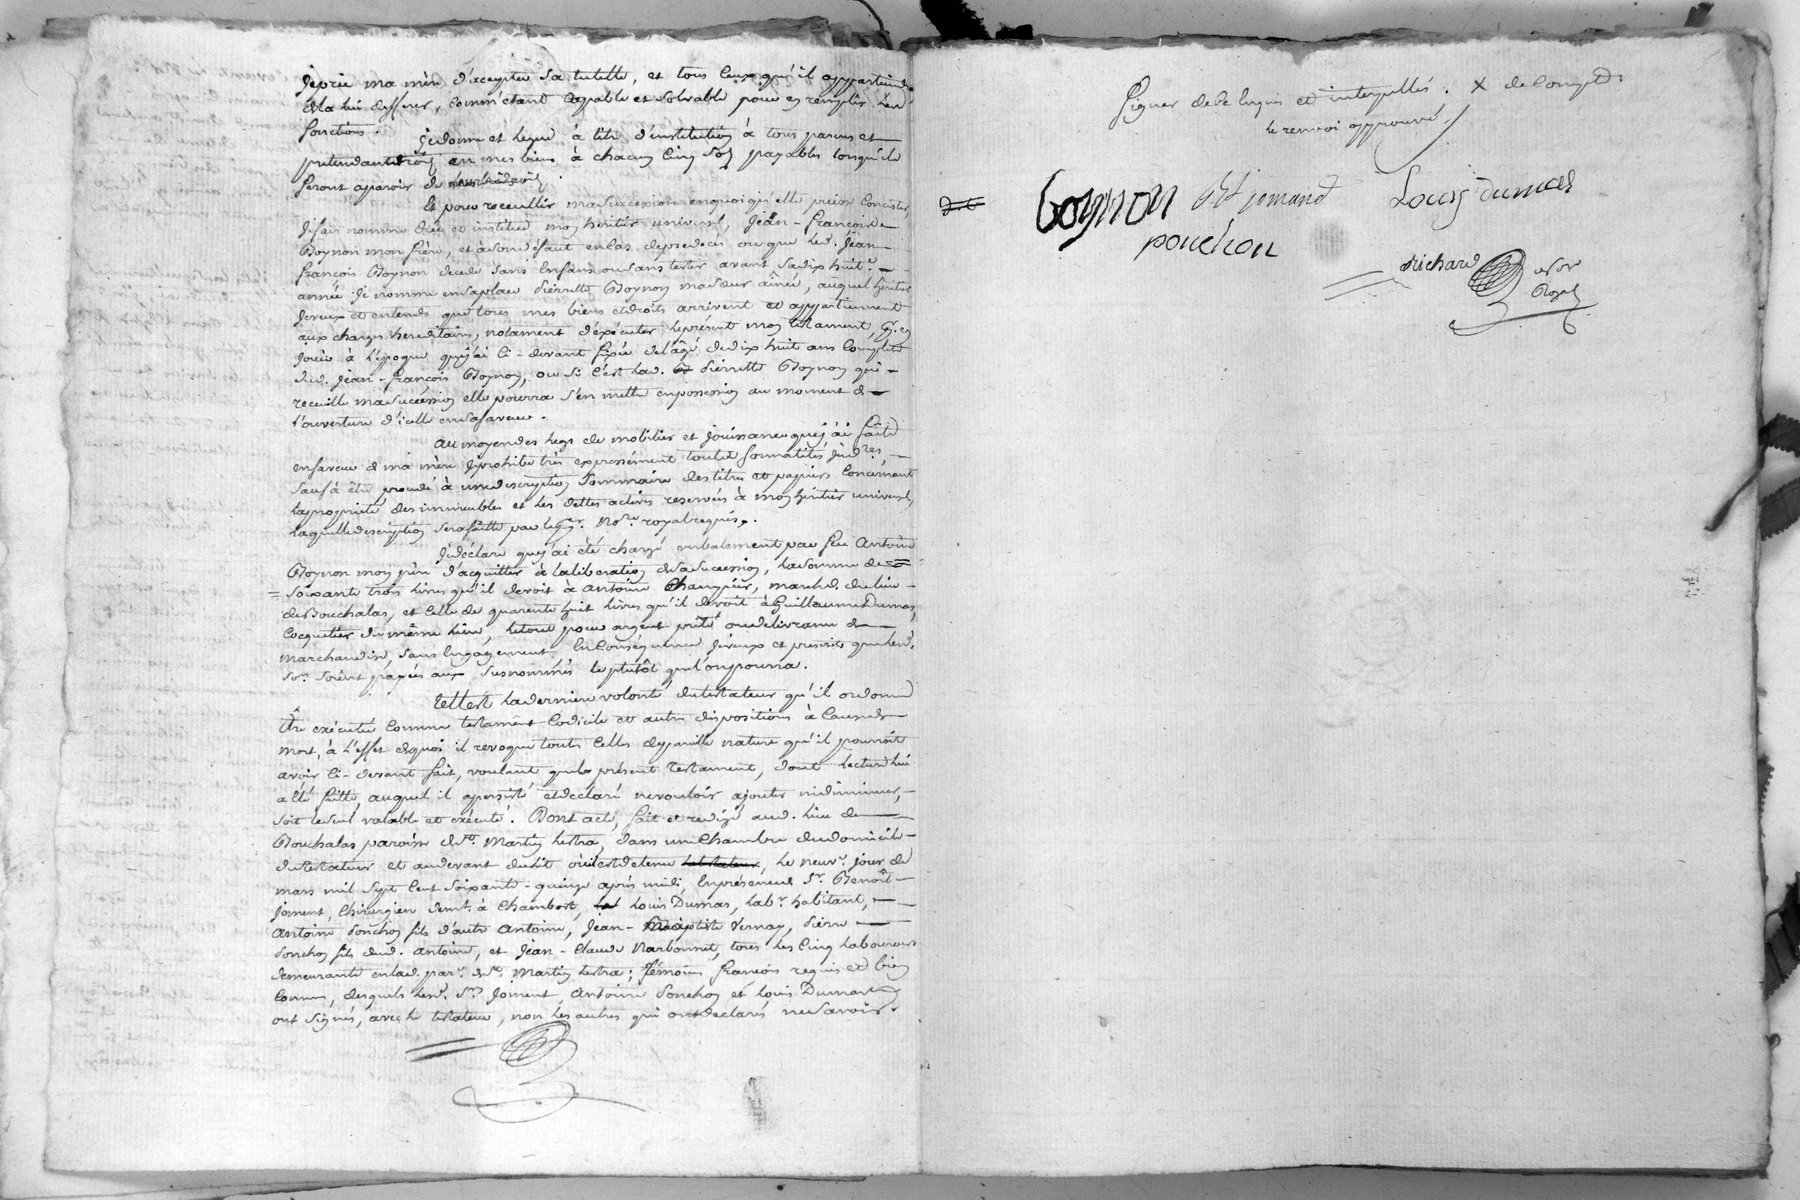 Je prie ma mère d'accepter sa tutelle, et tous ceux qu'il appartiendra
de la lui defferer, comm'etant capable et solvable pour en remplir les
fonctions.
Je donne et legue à titre d'institution à tous parens et
pretendants droit en mes biens à chacun cinq sols payables lorsqu'ils
feront aparoir de leurs droits.
Et pour recœullir ma succession en quoi qu'elle puisse concister,
Je fais nomme crée et institue mon heritier universel, Jean-françois
Boynon mon frère, et à son deffaut en cas de predeces ou que led. Jean
françois Boynon decede sans enfans ou sans tester avant sa dix huit.e
année Je nomme en sa place Pierrette Boynon ma sœur aînée, auquel heritier
Je veux et entends que tous mes biens et droits arrivent et appartiennent
aux charges hereditaires, notament d'exécuter le présent mon testament
Jouir à l'époque que j'ai ci-devant fixée de l'âge de dix huit ans complets
dud. Jean-françois Boynon, ou si c'est lad. Pierrette Boynon qui
recueille ma succession elle pourra s'en mettre en possession au moment de
l'ouverture d'icelle en sa faveur.
Au moyen des legs de mobilier et jouissance que j'ai faits
en faveur de ma mère je prohibe très expressément toutes formalités jud.res,
sauf à être procédé à une description sommaire des titres et papiers concernant
la propriété des immeubles et les dettes actives reservées à mon heritier universel
laquelle description sera faitte par le p.er No.re royal requis.
Je déclare que j'ai été chargé verbalement par feu Antoine
Boynon mon père d'acquitter à la liberation de sa succession, la somme de
soixante trois livres qu'il devoit à Antoine, march.d du lieu
de Bouchalas, et celle de quarente huit livres qu'il devoit à Guillaume Dumas,
Cocquetier du même lieu, le tout pour argent prêté ou delivrance de
marchandise, sans engagement. En conséquence je veux et prescrits que lesd.
so.es soient payées aux susnommés le plutôt que l'on pourra.
Telle est la derniere volonté du testateur qu'il ordonne
être exécutée comme testament codicile et autres dispositions à cause de
mort, à l'effet de quoi il revoque toutes celles de pareille nature qu'il pourroit
avoir ci-devant fait, voulant que le présent testament, dont lecture lui
a été faitte, auquel il a persisté et declaré ne vouloir ajouter ni diminuer,
soit le seul valable et exécuté. Dont acte, fait et redigé aud. lieu de
Bouchalas paroisse de S.t Martin lestra, dans une chambre du domicile
du testateur et au devant du lit où il est detenu, le neuv.e jour de
mars mil sept cent soixante-quinze après midi, En présence de S.r Benoît
Joment, Chirurgien demt. à Chambost, Louis Dumas, lab.r habitant,
Antoine Ponchon fils d'autre Antoine, Jean-Baptiste Vernay, Pierre
Ponchon fils dud. Antoine, et Jean-Claude Narbonnet, tous les cinq laboureurs
demeurants en lad. par.e de S.t Martin lestra; témoins françois requis et bien
connus, desquels led. S.r Joment, Antoine Ponchon et Louis Dumas
ont signés, avec le testateur, non les autres qui ont declarés ne savoir.
Signer de ce enquis et interpellés. X de compte
le renvoi approuvé.
Boynon Bt jomand Louis dumas
ponchon
Richard
no.re
Royal